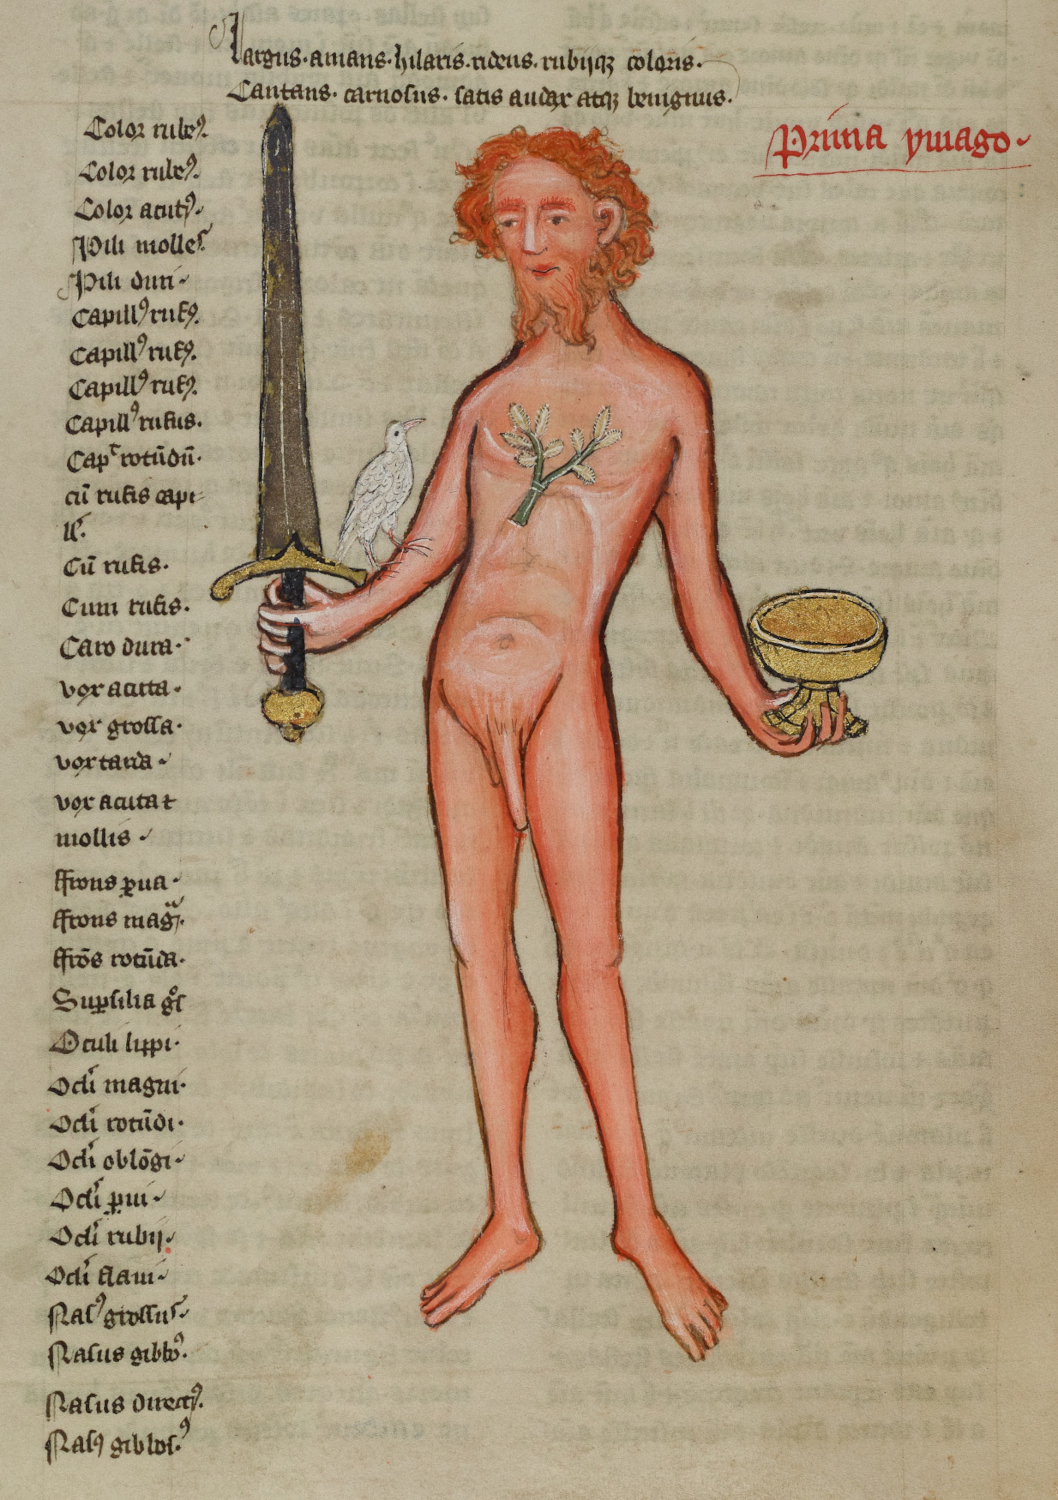 Largus. amans. hilaris. ridens. rubijqꝫ coloris.
Cantans. carnosus. satis audax atqꝫ benignus.
Prima ymago.
Color rubeꝰ.
Color rubeꝰ.
Color acutꝰ.
Pili molles
Pili duri
Capillꝰ rufꝰ.
Capillꝰ rufꝰ.
Capillꝰ rufꝰ.
Capillꝰ rufus.
Capᶜ rotūdū.
cū rufis capi
llˢ.
Cū rufis.
Cum rufis.
Caro dura.
vox acuta.
vox grossa.
vox tarda.
vox acuta ⁊
mollis
ffrons ꝑua.
ffrons magᷓ.
ffrōs rotūda.
Suꝑsilia gᵒſ
Oculi lippi.
Ocl̓i magni.
Ocl̓i rotūdi.
Ocl̓i oblōgi.
Ocl̓i ꝑui
Ocl̓i rubij.
Ocl̓i flaui
Nasꝰ grossus
Nasus gibbꝰ.
Nasus directꝰ.
Nasꝰ gibbosꝰ.